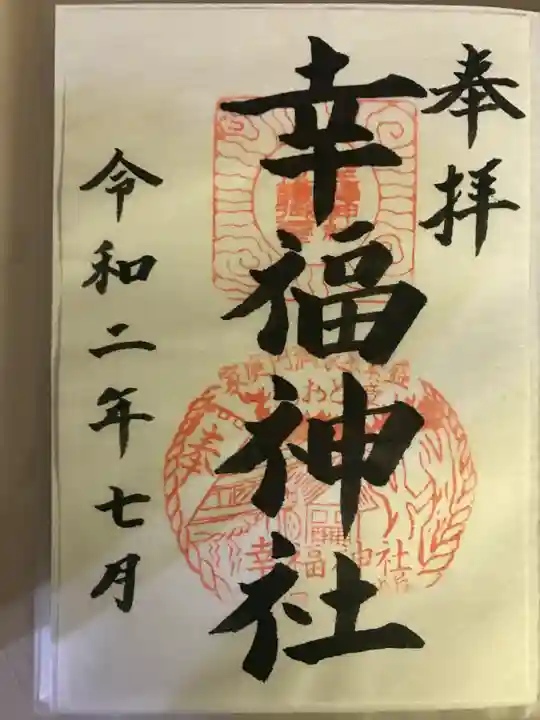 奉拝
幸福神社
幸福神社
令和二年七月